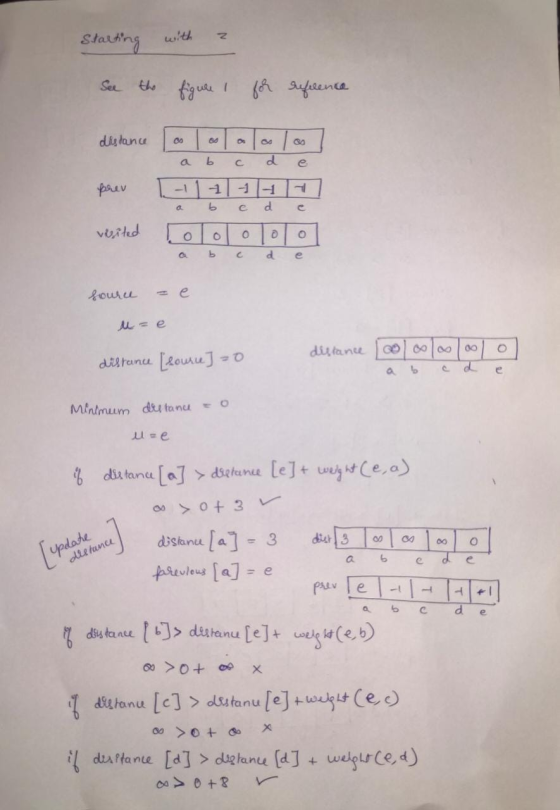 Starting with z
See the figure 1 for reference
distance ∞ ∞ ∞ ∞ ∞
a b c d e
prev -1 -1 -1 -1 -1
a b c d e
visited 0 0 0 0 0
a b c d e
source = e
u = e
distance [source] = 0 distance ∞ ∞ ∞ ∞ 0
a b c d e
Minimum distance = 0
u = e
if distance [a] > distance [e] + weight (e, a)
∞ > 0 + 3 ✓
[update distance] distance [a] = 3 dist 3 ∞ ∞ ∞ 0
a b c d e
previous [a] = e prev e -1 -1 -1 -1
a b c d e
if distance [b] > distance [e] + weight (e, b)
∞ > 0 + ∞ x
if distance [c] > distance [e] + weight (e, c)
∞ > 0 + ∞ x
if distance [d] > distance [d] + weight (e, d)
∞ > 0 + 8 ✓